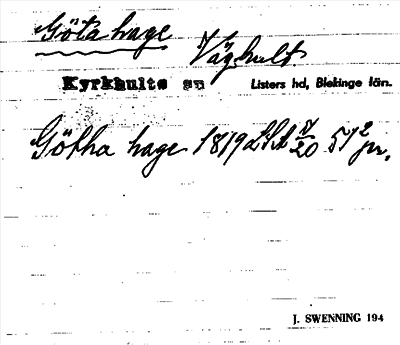 Göta hage
Väghult
Kyrkhults sn Listers hd, Blekinge län.
Götha hage 1819 LSA V/20 51² jr.
J. SWENNING 194